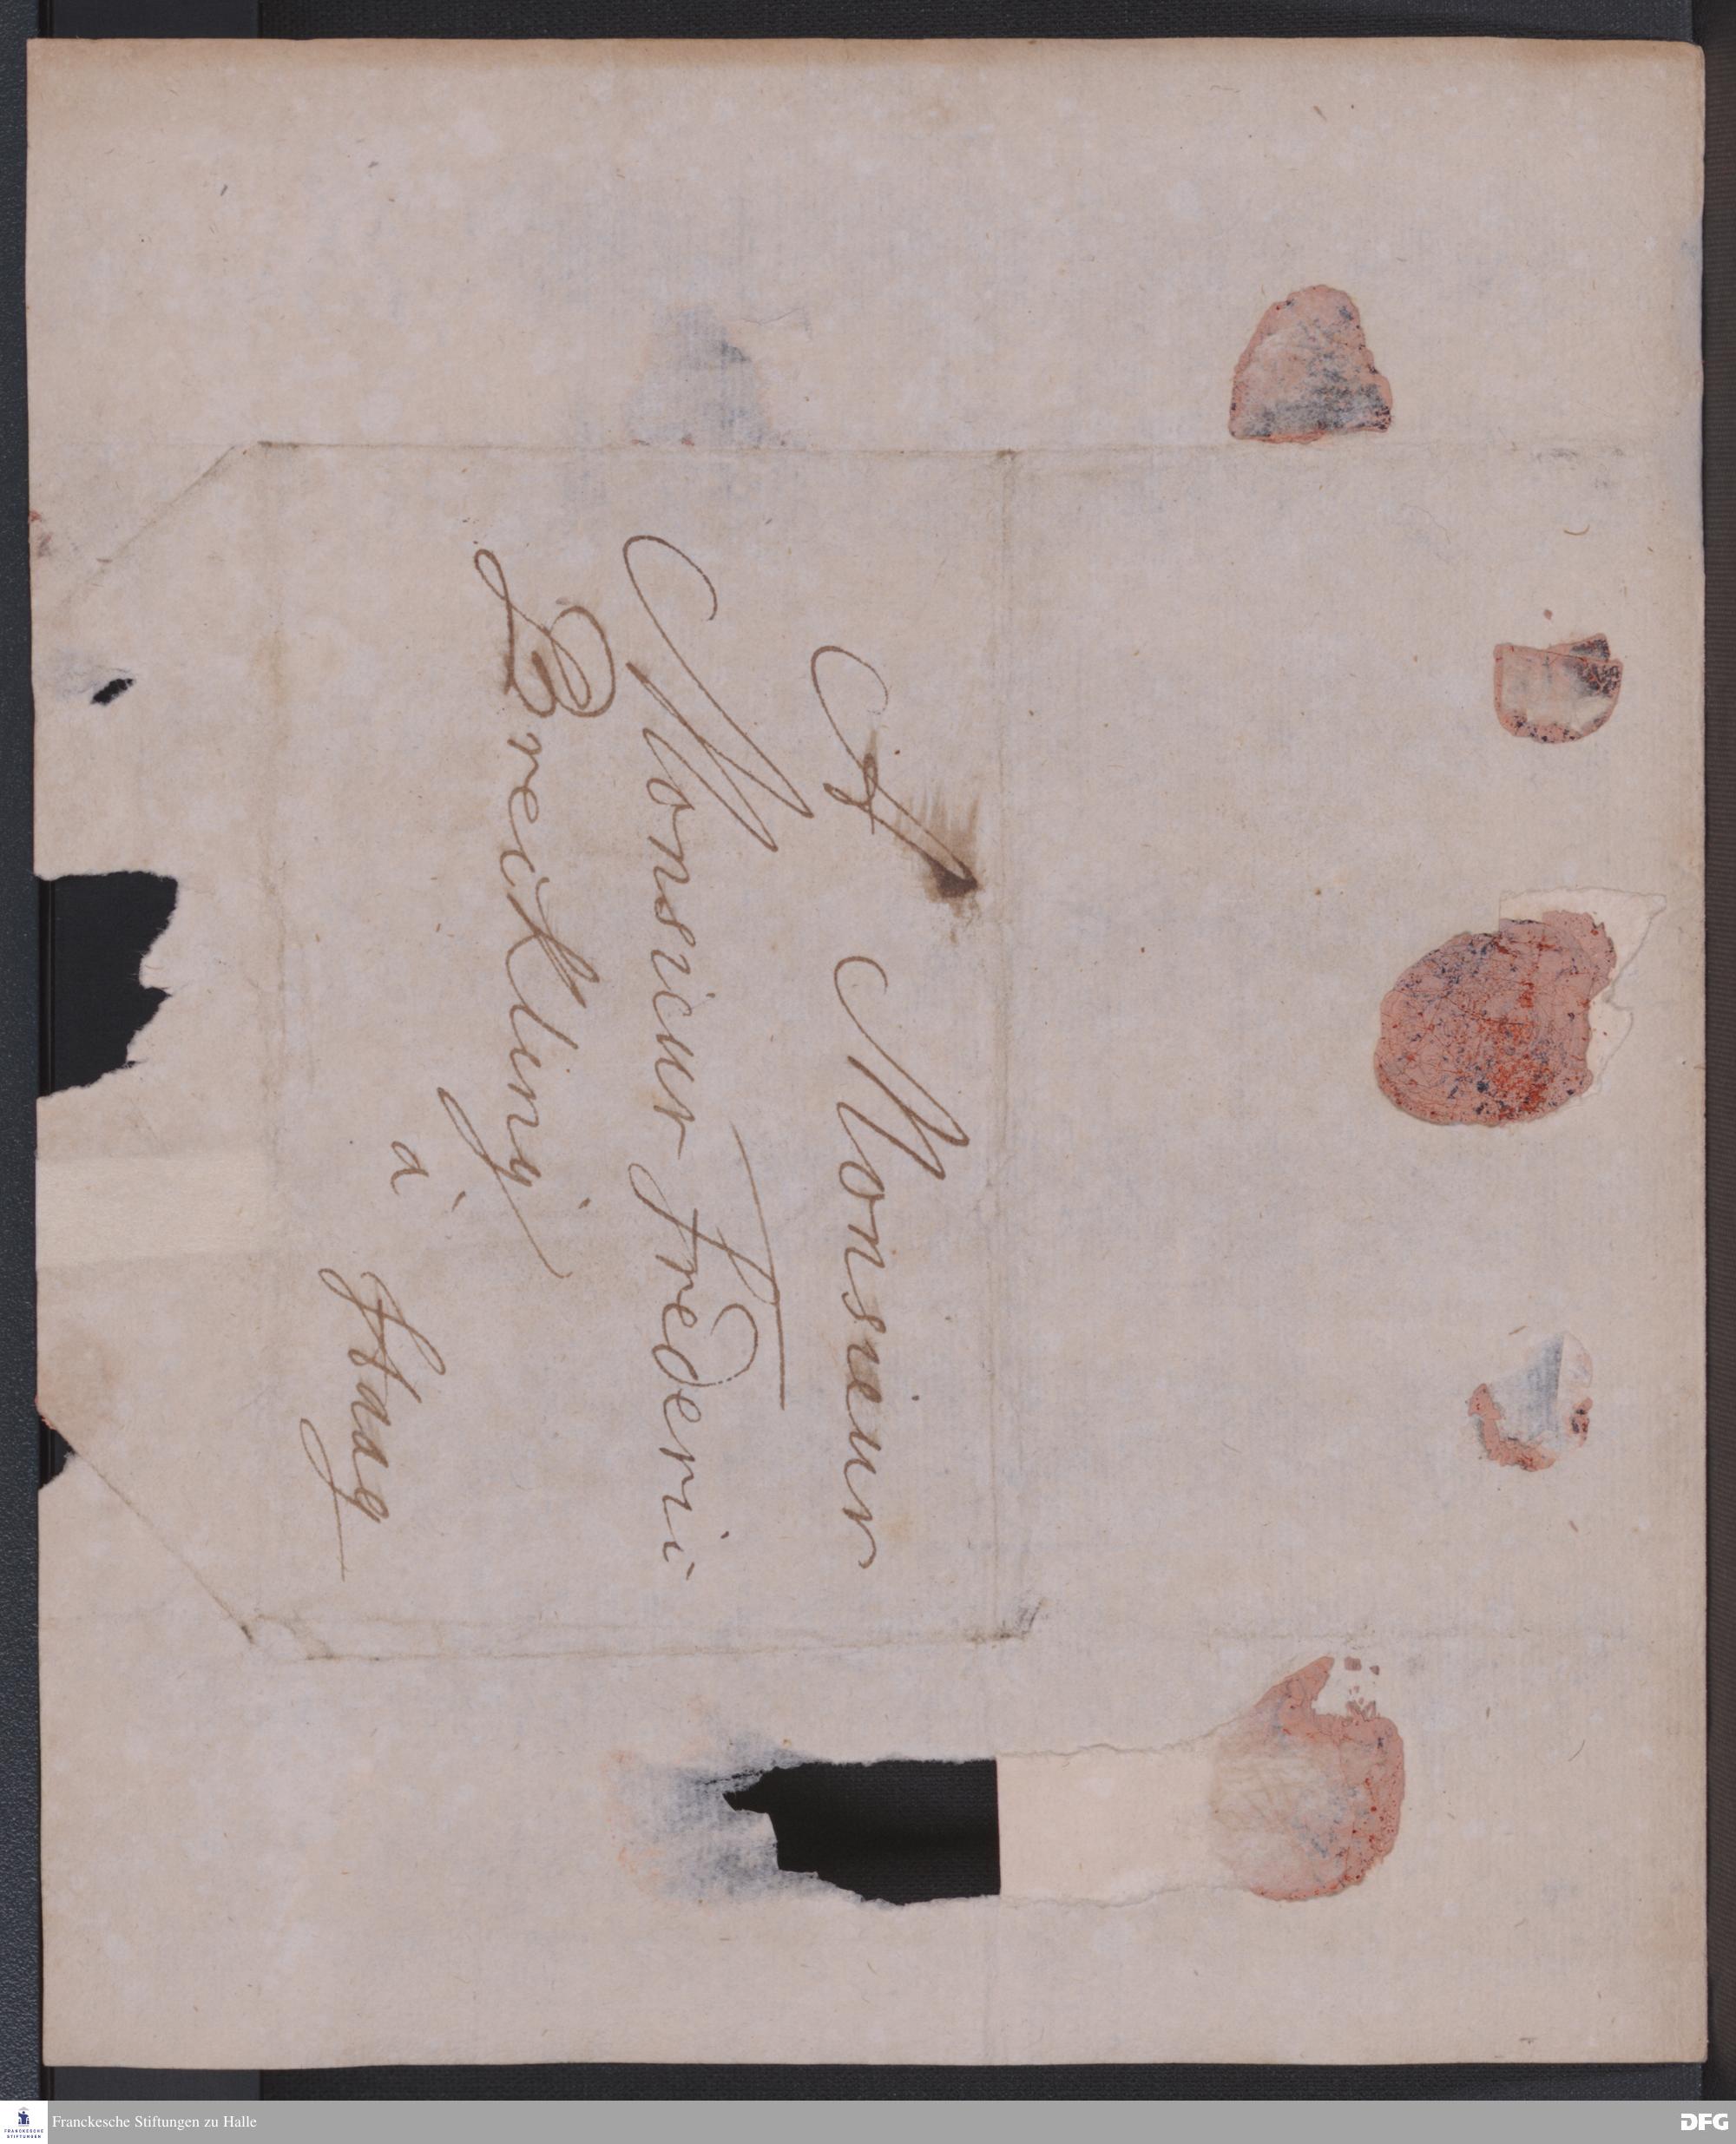 A Monsieur
Monsieur Frederic
Breckling
à Haag
Franckesche Stiftungen zu Halle
FRANCKESCHE
STIFTUNGEN
DFG